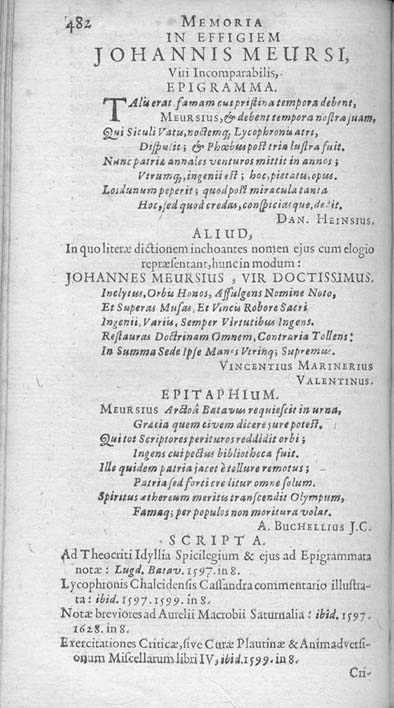 482 MEMORIA
IN EFFIGIEM
JOHANNIS MEURSI,
Viri Incomparabilis,
EPIGRAMMA.
Talis erat famam cui pristina tempora debent,
MEURSIUS, & debent tempora nostra suam.
Qui Siculi Vatis, noctemq, Lycophronis atri,
Dispulit; & Phœbus post tria lustra fuit.
Nunc patriæ annales venturos mittit in annos;
Utrumq, ingenii est; hoc, pietatis, opus.
Losdunum peperit; quod post miracula tanta
Hoc, sed quod credas, conspiciasque, dedit.
DAN. HEINSIUS.
ALIUD,
In quo literæ dictionem inchoantes nomen ejus cum elogio
repræsentant, hunc in modum:
JOHANNES MEURSIUS, VIR DOCTISSIMUS.
Inclytus, Orbis Honos, Affulgens Nomine Noto,
Et Superas Musas, Et Vincis Robore Sacri
Ingenii, Variis, Semper Virtutibus Ingens.
Restauras Doctrinam Omnem, Contraria Tollens:
In Summa Sede Ipse Manes Virinq; Supremus.
VINCENTIUS MARINERIUS
VALENTINUS.
EPITAPHIUM.
MEURSIUS Arctoâ Batavus requiescit in urna,
Græcia quem civem dicere jure potest.
Qui tot Scriptores perituros reddidit orbi;
Ingens cui pectus bibliotheca fuit.
Ille quidem patria jacet è tellure remotus;
Patria sed forti creditur omne solum.
Spiritus æthereum meritis transcendit Olympum,
Famaq; per populos non moritura volat.
A. BUCHELLIUS J.C.
SCRIPTA.
Ad Theocriti Idyllia Spicilegium & ejus ad Epigrammata
notæ: Lugd. Batav. 1597. in 8.
Lycophronis Chalcidensis Cassandra commentario illustra-
ta: ibid. 1597. 1599. in 8.
Notæ breviores ad Aurelii Macrobii Saturnalia: ibid. 1597.
1628. in 8.
Exercitationes Criticæ, sive Curæ Plautinæ & Animadversi-
onum Miscellarum libri IV, ibid. 1599. in 8.
Cri-